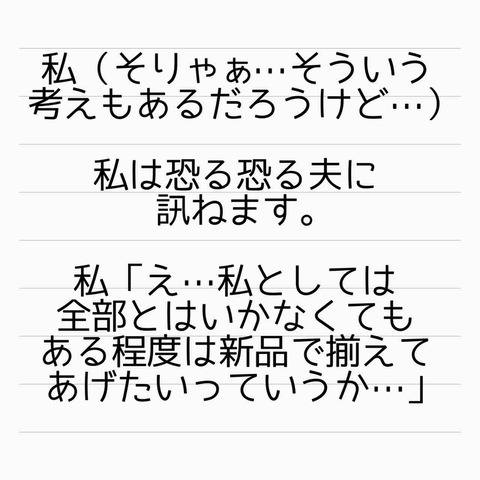 私（そりゃぁ…そういう
考えもあるだろうけど…）
私は恐る恐る夫に
訊ねます。
私「え…私としては
全部とはいかなくても
ある程度は新品で揃えて
あげたいっていうか…」